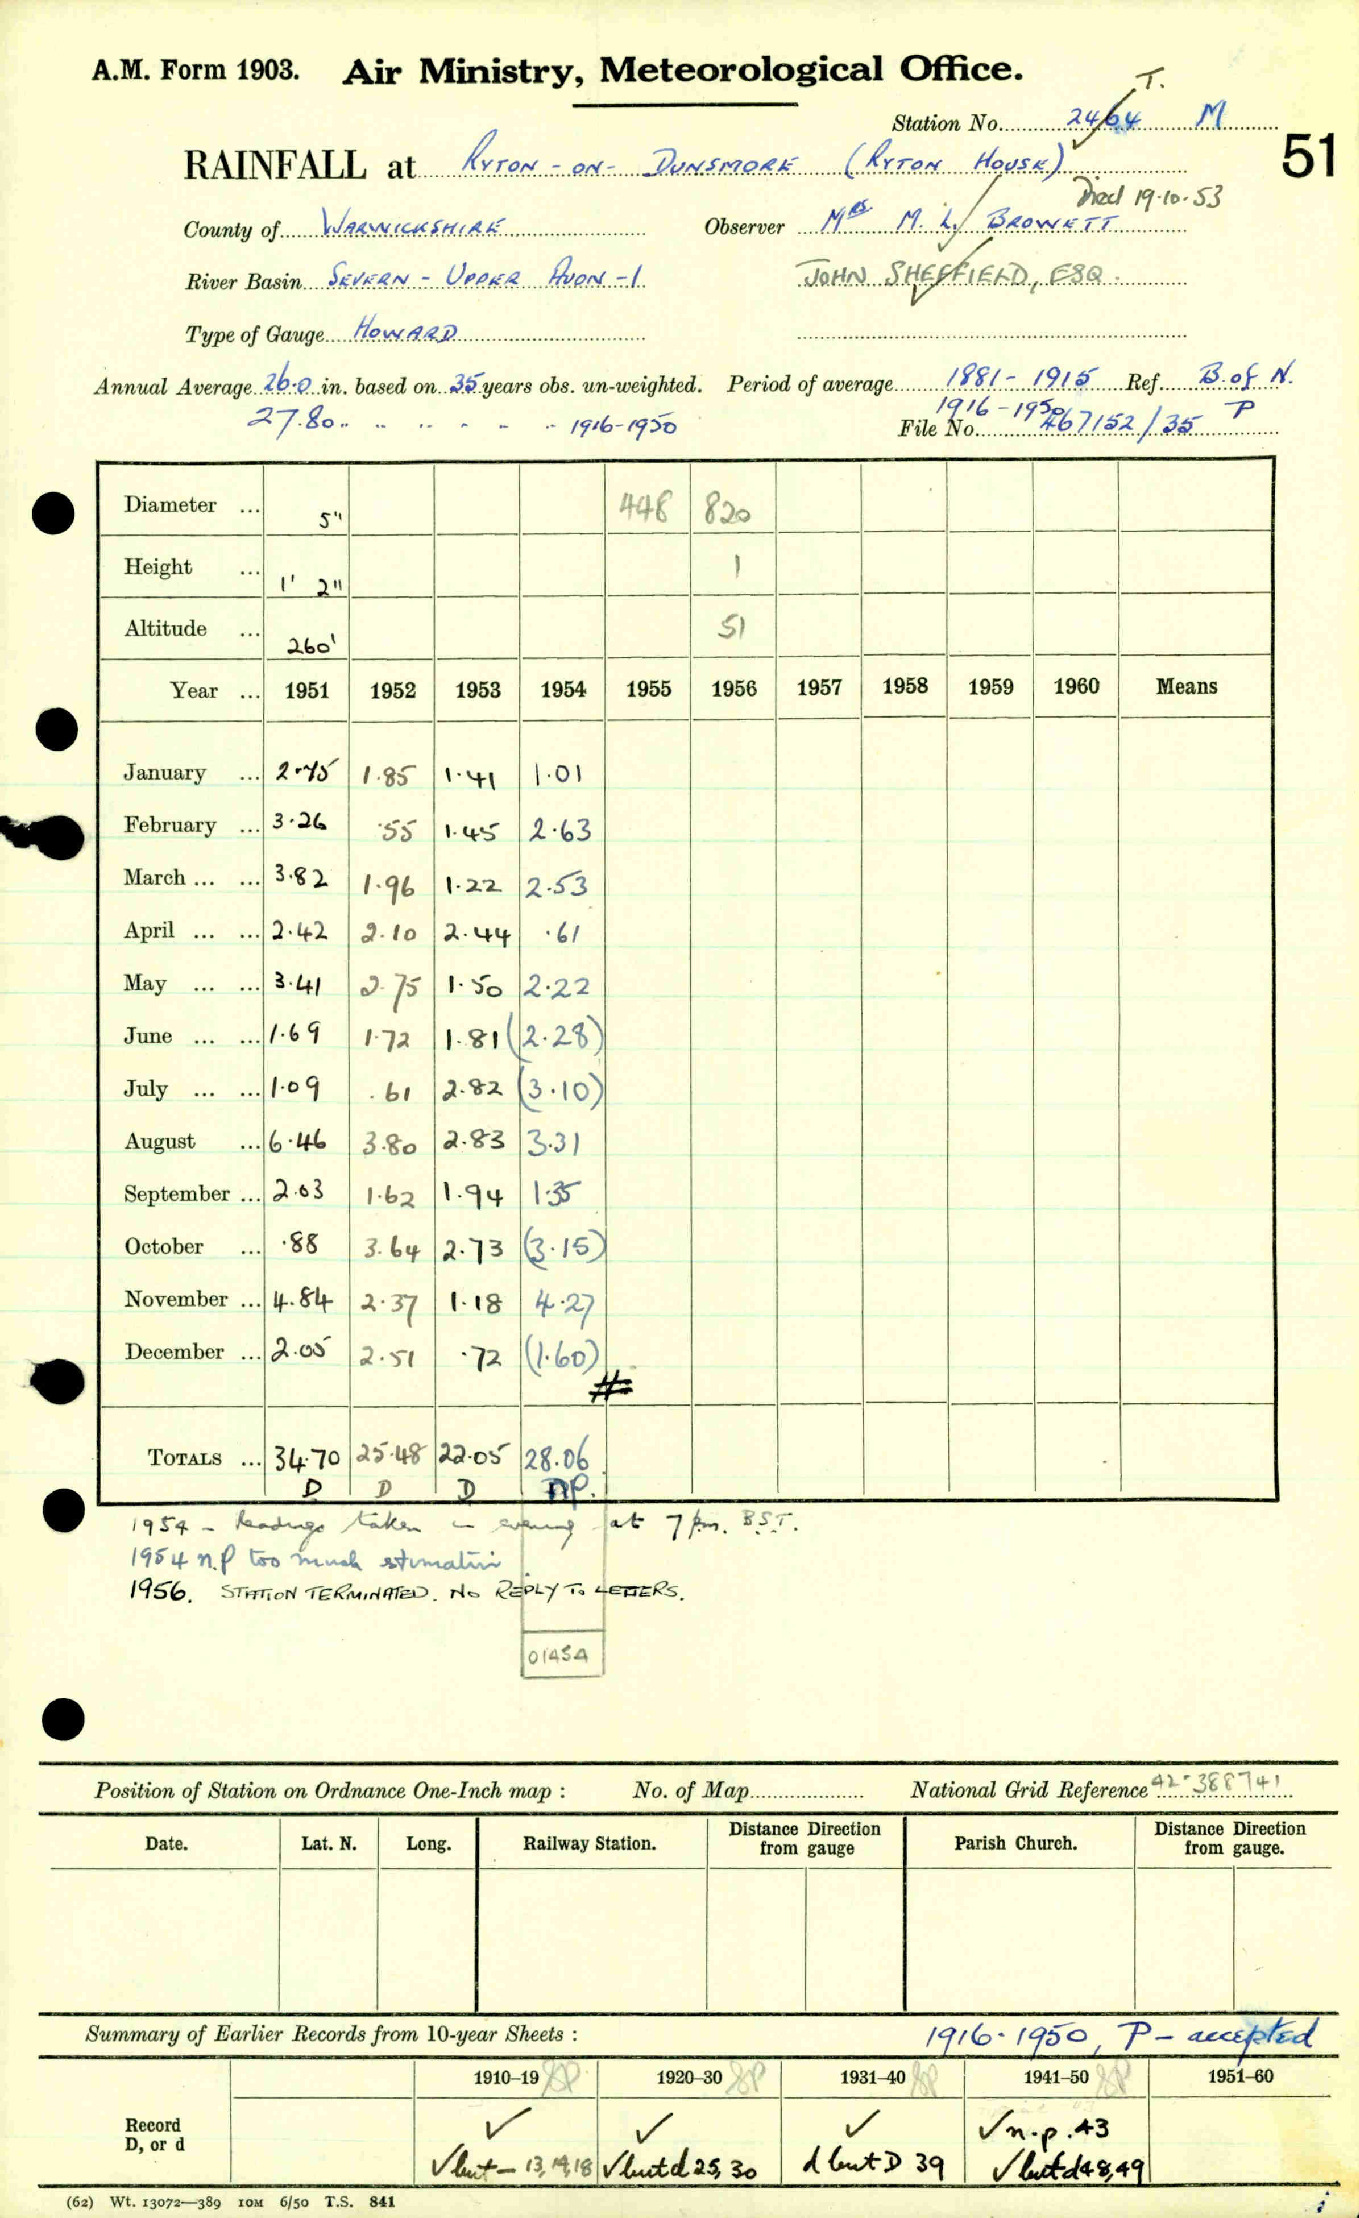 A.M. Form 1903. Air Ministry, Meteorological Office.
T.
Station No. 2464 M
RAINFALL at RYTON-ON-DUNSMORE (RYTON HOUSE) 51
Died 19.10.53
County of WARWICKSHIRE Observer Mrs M. L. BROWETT
River Basin SEVERN - UPPER AVON -1 JOHN SHEFFIELD, ESQ.
Type of Gauge HOWARD
Annual Average 26.0 in. based on 35 years obs. un-weighted. Period of average 1881-1915 Ref. B. of N.
1916-1950 P
27.80 .. .. .. .. 1916-1950 File No. 467152/35
Diameter ... 5" 448 820
Height ... 1' 2" 1
Altitude ... 260' 51
Year ... 1951 1952 1953 1954 1955 1956 1957 1958 1959 1960 Means
January ... 2.75 1.85 1.41 1.01
February ... 3.26 .55 1.45 2.63
March ... ... 3.82 1.96 1.22 2.53
April ... ... 2.42 2.10 2.44 .61
May ... ... 3.41 2.75 1.50 2.22
June ... ... 1.69 1.72 1.81 (2.28)
July ... ... 1.09 .61 2.82 (3.10)
August ... 6.46 3.80 2.83 3.31
September ... 2.03 1.62 1.94 1.35
October ... .88 3.64 2.73 (3.15)
November ... 4.84 2.37 1.18 4.27
December ... 2.05 2.51 .72 (1.60)
#
TOTALS ... 34.70 25.48 22.05 28.06
D D D np.
1954 - Readings taken in evening at 7 pm. B.S.T.
1954 n.p too much estimatin
1956. STATION TERMINATED. NO REPLY TO LETTERS.
0145A
Position of Station on Ordnance One-Inch map : No. of Map National Grid Reference 42-388741
Date. Lat. N. Long. Railway Station. Distance Direction from gauge Parish Church. Distance Direction from gauge.
Summary of Earlier Records from 10-year Sheets : 1916-1950, P - accepted
1910-19 1920-30 1931-40 1941-50 1951-60
Record D, or d
✓ ✓ ✓ ✓ n.p. 43
✓ but - 13, 14, 18 ✓ but d 25, 30 d but D 39 ✓ but d 48, 49
(62) Wt. 13072—389 10M 6/50 T.S. 841